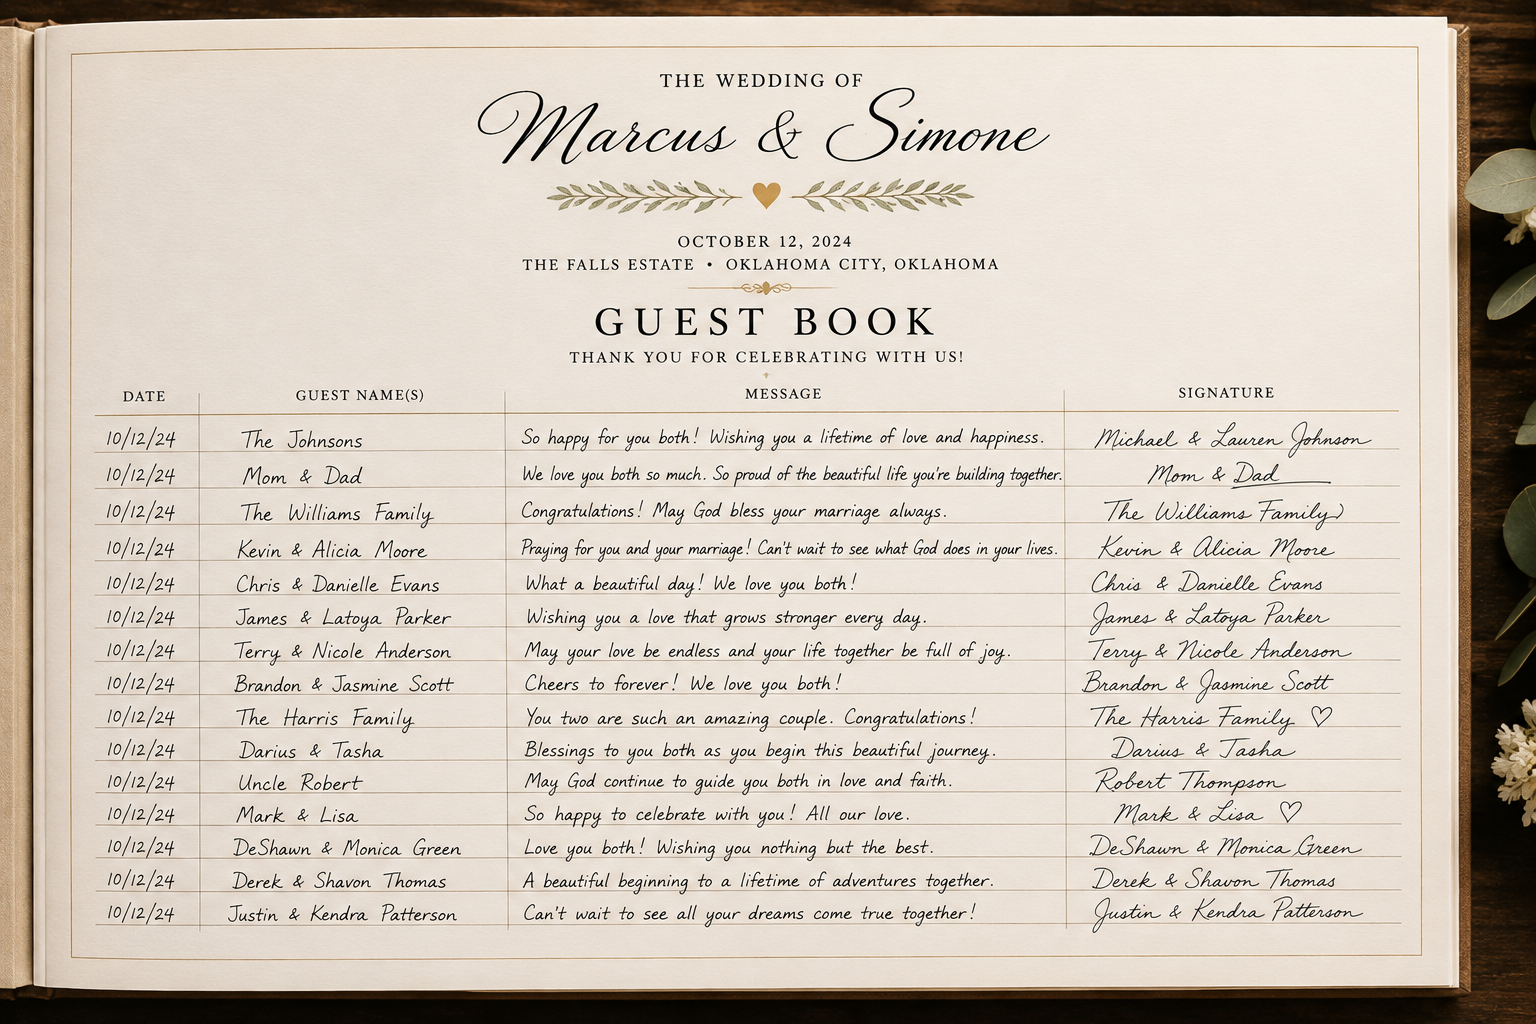 THE WEDDING OF
Marcus & Simone
OCTOBER 12, 2024
THE FALLS ESTATE • OKLAHOMA CITY, OKLAHOMA
GUEST BOOK
THANK YOU FOR CELEBRATING WITH US!
DATE GUEST NAME(S) MESSAGE SIGNATURE
10/12/24 The Johnsons So happy for you both! Wishing you a lifetime of love and happiness. Michael & Lauren Johnson
10/12/24 Mom & Dad We love you both so much. So proud of the beautiful life you're building together. Mom & Dad
10/12/24 The Williams Family Congratulations! May God bless your marriage always. The Williams Family
10/12/24 Kevin & Alicia Moore Praying for you and your marriage! Can't wait to see what God does in your lives. Kevin & Alicia Moore
10/12/24 Chris & Danielle Evans What a beautiful day! We love you both! Chris & Danielle Evans
10/12/24 James & Latoya Parker Wishing you a love that grows stronger every day. James & Latoya Parker
10/12/24 Terry & Nicole Anderson May your love be endless and your life together be full of joy. Terry & Nicole Anderson
10/12/24 Brandon & Jasmine Scott Cheers to forever! We love you both! Brandon & Jasmine Scott
10/12/24 The Harris Family You two are such an amazing couple. Congratulations! The Harris Family ♡
10/12/24 Darius & Tasha Blessings to you both as you begin this beautiful journey. Darius & Tasha
10/12/24 Uncle Robert May God continue to guide you both in love and faith. Robert Thompson
10/12/24 Mark & Lisa So happy to celebrate with you! All our love. Mark & Lisa ♡
10/12/24 DeShawn & Monica Green Love you both! Wishing you nothing but the best. DeShawn & Monica Green
10/12/24 Derek & Shavon Thomas A beautiful beginning to a lifetime of adventures together. Derek & Shavon Thomas
10/12/24 Justin & Kendra Patterson Can't wait to see all your dreams come true together! Justin & Kendra Patterson